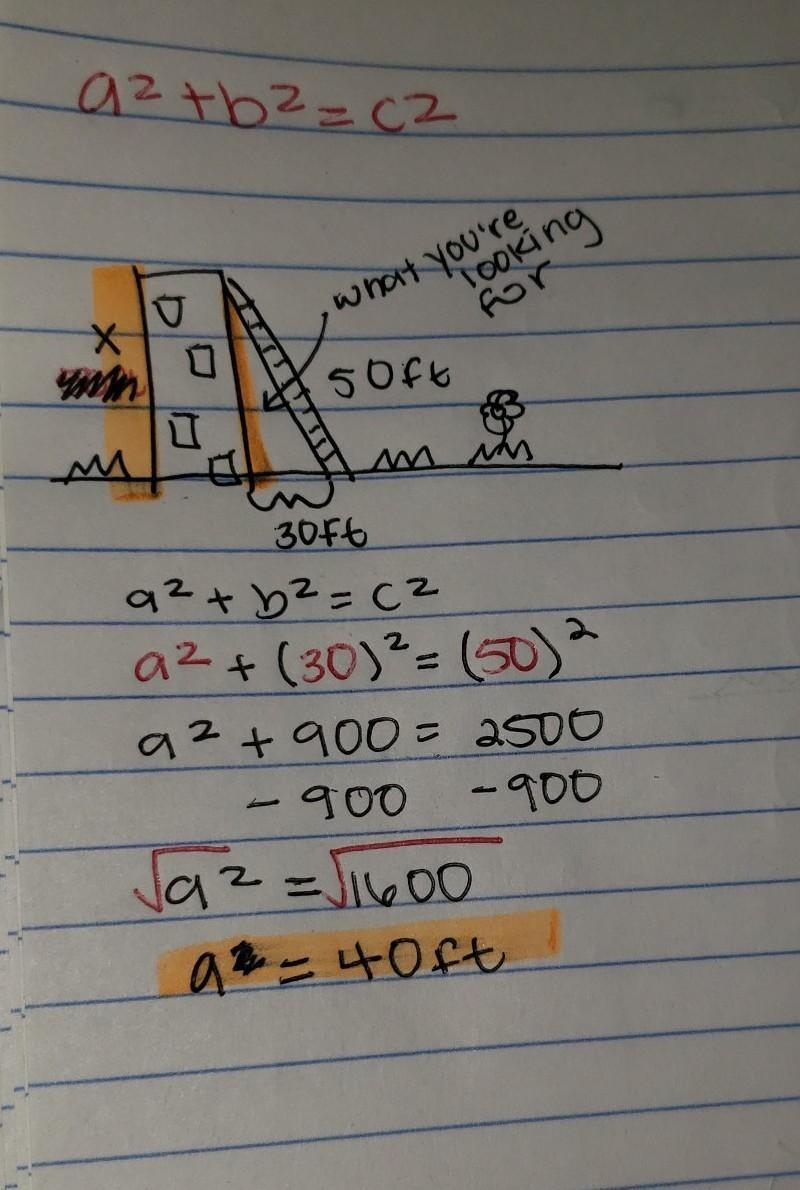 a² + b² = c2
what you're
looking
for
x
50ft
30ft
a² + b² = c²
a² + (30)² = (50)²
a² + 900 = 2500
- 900 -900
√a² = √1600
a = 40ft